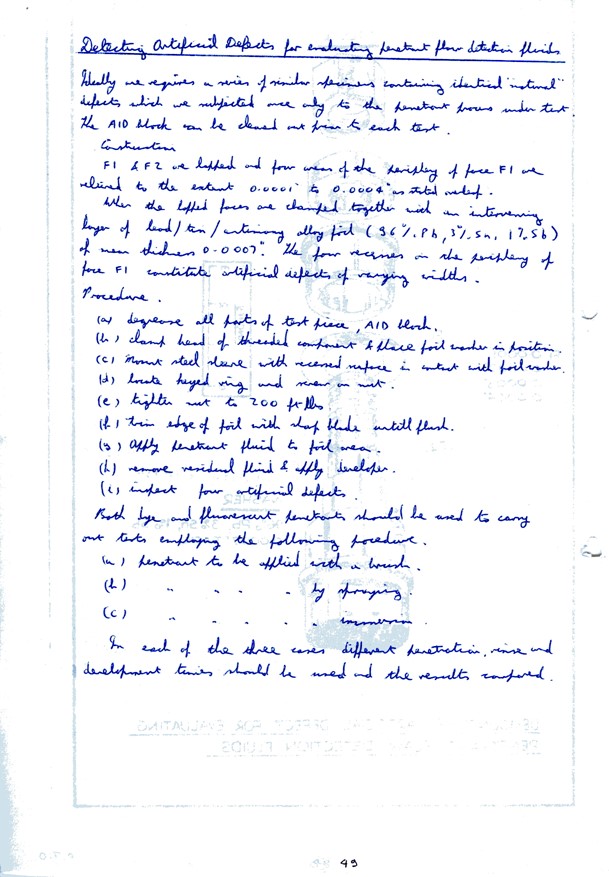 Detecting Artificial Defects for evaluating penetrant flow detection fluids
Ideally one requires a series of similar specimens containing identical "natural"
defects which are subjected once only to the penetrant process under test.
The AID block can be cleaned out prior to each test.
Construction
F1 & F2 are lapped and four areas of the periphery of face F1 are
relieved to the extent 0.0001" to 0.0004" as stated
When the lapped faces are clamped together with an intervening
layer of lead/tin/antimony alloy foil (96% Pb, 3% Sn, 1% Sb)
of mean thickness 0.0007". The four recesses on the periphery of
face F1 constitute artificial defects of varying widths.
Procedure.
(a) degrease all parts of test piece, AID block.
(b) clamp head of threaded component & place foil washer in position.
(c) Mount steel sleeve with recessed surface in contact with foil washer.
(d) locate keyed ring and screw on nut.
(e) tighten nut to 200 ft lbs
(f) trim edge of foil with sharp blade untill flush.
(g) Apply penetrant fluid to foil area.
(h) remove residual fluid & apply developer.
(i) inspect four artificial defects.
Both dye and fluorescent penetrants should be used to carry
out tests employing the following procedure.
(a) penetrant to be applied with a brush.
(b) " " " " by spraying.
(c) " " " " immersion.
In each of the three cases different penetration, rinse and
development times should be used and the results compared.
DETECTING ARTIFICIAL DEFECT FOR EVALUATING
PENETRANT FLAW DETECTION FLUIDS
P.T.O
49